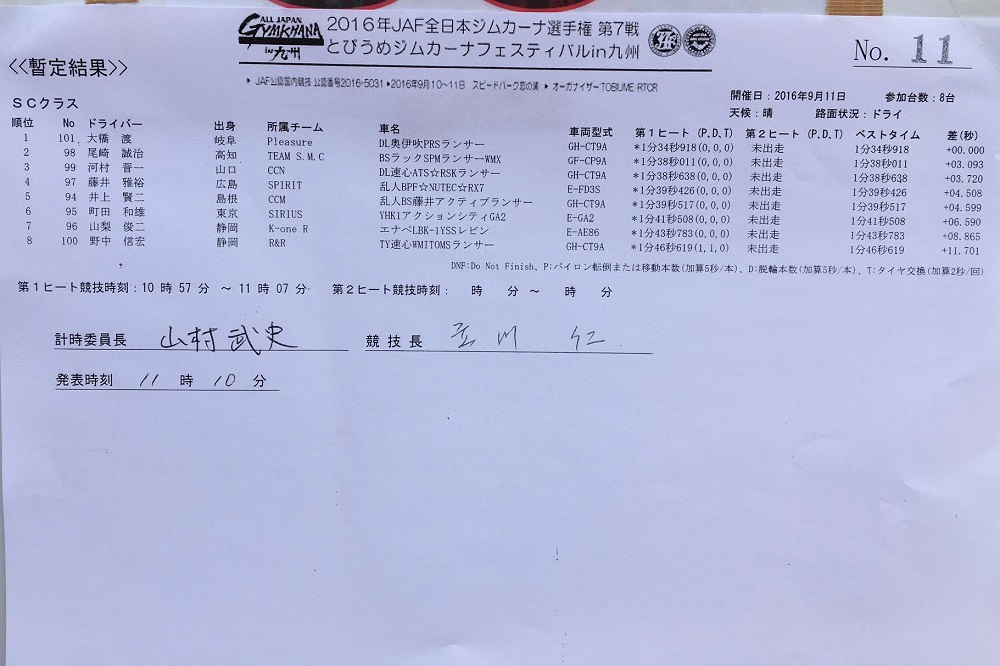 ALL JAPAN
GYMKHANA
in 九州
2016年JAF全日本ジムカーナ選手権 第7戦
とびうめジムカーナフェスティバルin九州
No. 11
▶ JAF公認国内競技 公認番号2016-5031 ▶2016年9月10~11日 スピードパーク恋の浦 ▶ オーガナイザーTOBIUME RTCR
<<暫定結果>>
開催日:2016年9月11日 参加台数:8台
SCクラス 天候:晴 路面状況:ドライ
順位 No ドライバー 出身 所属チーム 車名 車両型式 第1ヒート(P,D,T) 第2ヒート(P,D,T) ベストタイム 差(秒)
1 101 大橋 渡 岐阜 Pleasure DL奥伊吹PRSランサー GH-CT9A *1分34秒918(0,0,0) 未出走 1分34秒918 +00.000
2 98 尾崎 誠治 高知 TEAM S.M.C BSラックSPMランサーWMX GF-CP9A *1分38秒011(0,0,0) 未出走 1分38秒011 +03.093
3 99 河村 晋一 山口 CCN DL速心ATS☆RSKランサー GH-CT9A *1分38秒638(0,0,0) 未出走 1分38秒638 +03.720
4 97 藤井 雅裕 広島 SPIRIT 乱人BPF☆NUTEC☆RX7 E-FD3S *1分39秒426(0,0,0) 未出走 1分39秒426 +04.508
5 94 井上 賢二 島根 CCM 乱人BS藤井アクティブランサー GH-CT9A *1分39秒517(0,0,0) 未出走 1分39秒517 +04.599
6 95 町田 和雄 東京 SIRIUS YHK1アクションシティGA2 E-GA2 *1分41秒508(0,0,0) 未出走 1分41秒508 +06.590
7 96 山梨 俊二 静岡 K-one R エナペLBK-1YSSレビン E-AE86 *1分43秒783(0,0,0) 未出走 1分43秒783 +08.865
8 100 野中 信宏 静岡 R&R TY速心WMITOMSランサー GH-CT9A *1分46秒619(1,1,0) 未出走 1分46秒619 +11.701
DNF:Do Not Finish、P:パイロン転倒または移動本数(加算5秒/本)、D:脱輪本数(加算5秒/本)、T:タイヤ交換(加算2秒/回)
第1ヒート競技時刻:10時57分 ~11時07分 第2ヒート競技時刻: 時 分~ 時 分
計時委員長 山村武史 競技長 川 仁
発表時刻 11 時 10 分